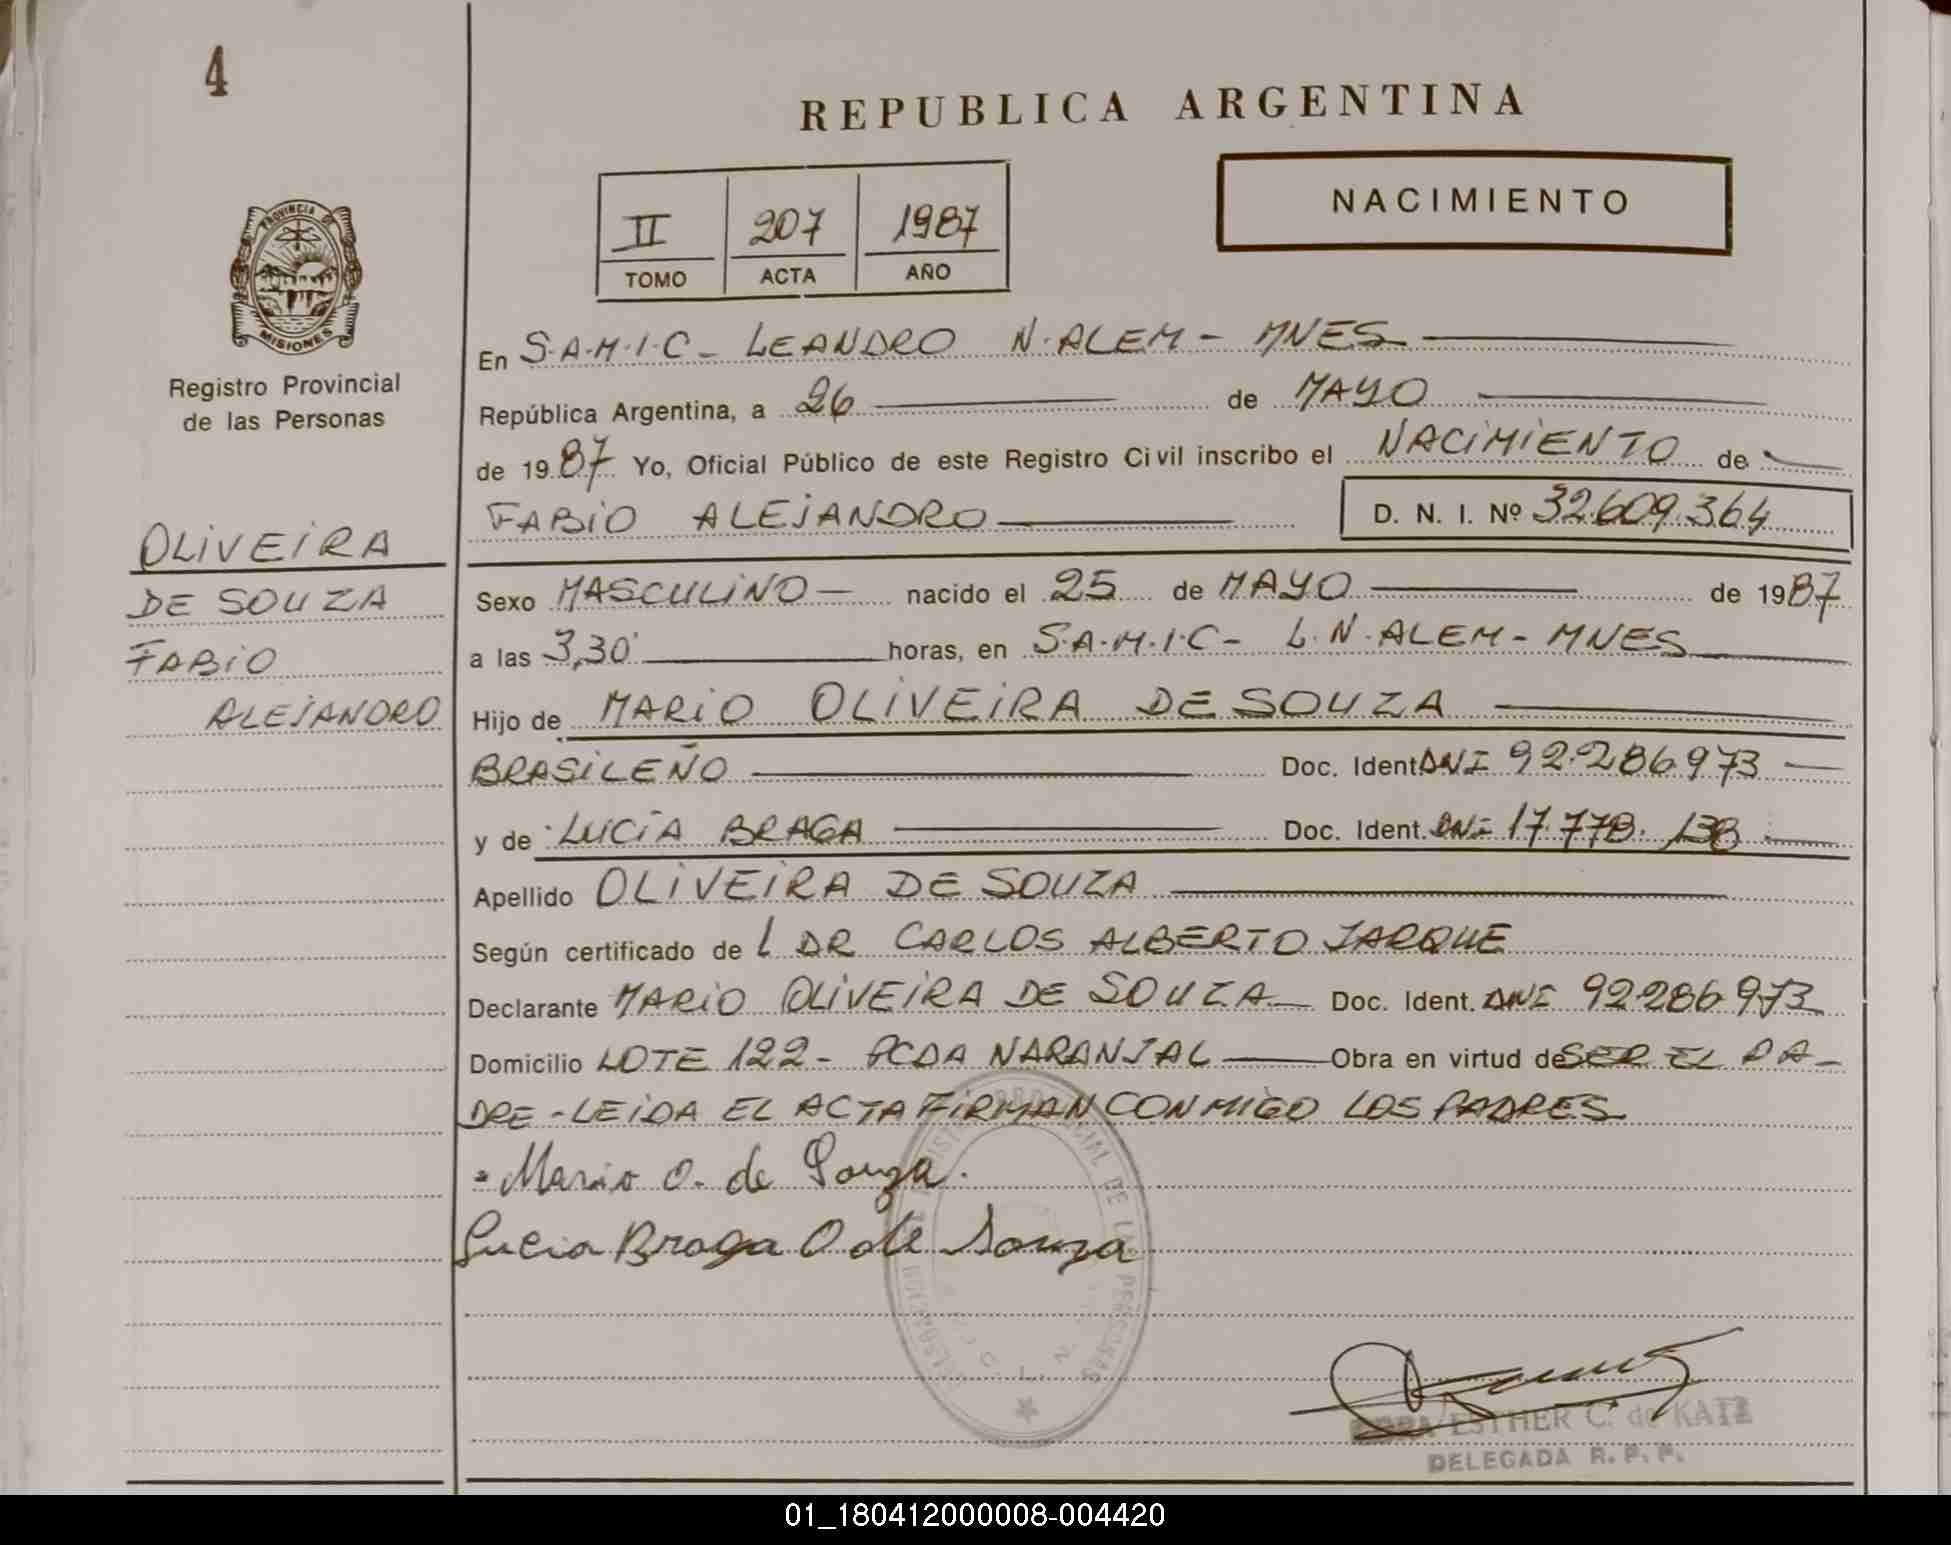 4
REPUBLICA ARGENTINA
NACIMIENTO
II 207 1987
TOMO ACTA AÑO
PROVINCIA DE
MISIONES
Registro Provincial
de las Personas
OLIVEIRA
DE SOUZA
FABIO
ALEJANDRO
En S.A.M.I.C - LEANDRO N. ALEM - MNES
República Argentina, a 26 de MAYO
de 1987 Yo, Oficial Público de este Registro Civil inscribo el NACIMIENTO de
FABIO ALEJANDRO D. N. I. Nº 32.609.364
Sexo MASCULINO - nacido el 25 de MAYO de 1987
a las 3,30 horas, en S.A.M.I.C - L. N. ALEM - MNES
Hijo de MARIO OLIVEIRA DE SOUZA
BRASILEÑO Doc. Ident. DNI 92.286.973
y de LUCÍA BRAGA Doc. Ident. DNI 17.778.138
Apellido OLIVEIRA DE SOUZA
Según certificado de L DR CARLOS ALBERTO JARQUE
Declarante MARIO OLIVEIRA DE SOUZA Doc. Ident. DNI 92.286.973
Domicilio LOTE 122 - PCDA NARANJAL Obra en virtud de SER EL PA-
DRE - LEIDA EL ACTA FIRMAN CONMIGO LOS PADRES
Mario O. de Souza.
Lucia Braga O de Souza
PROVINCIAL DE LAS PERSONAS
ESTHER C. de KATZ
DELEGADA R. P. P.
01_180412000008-004420